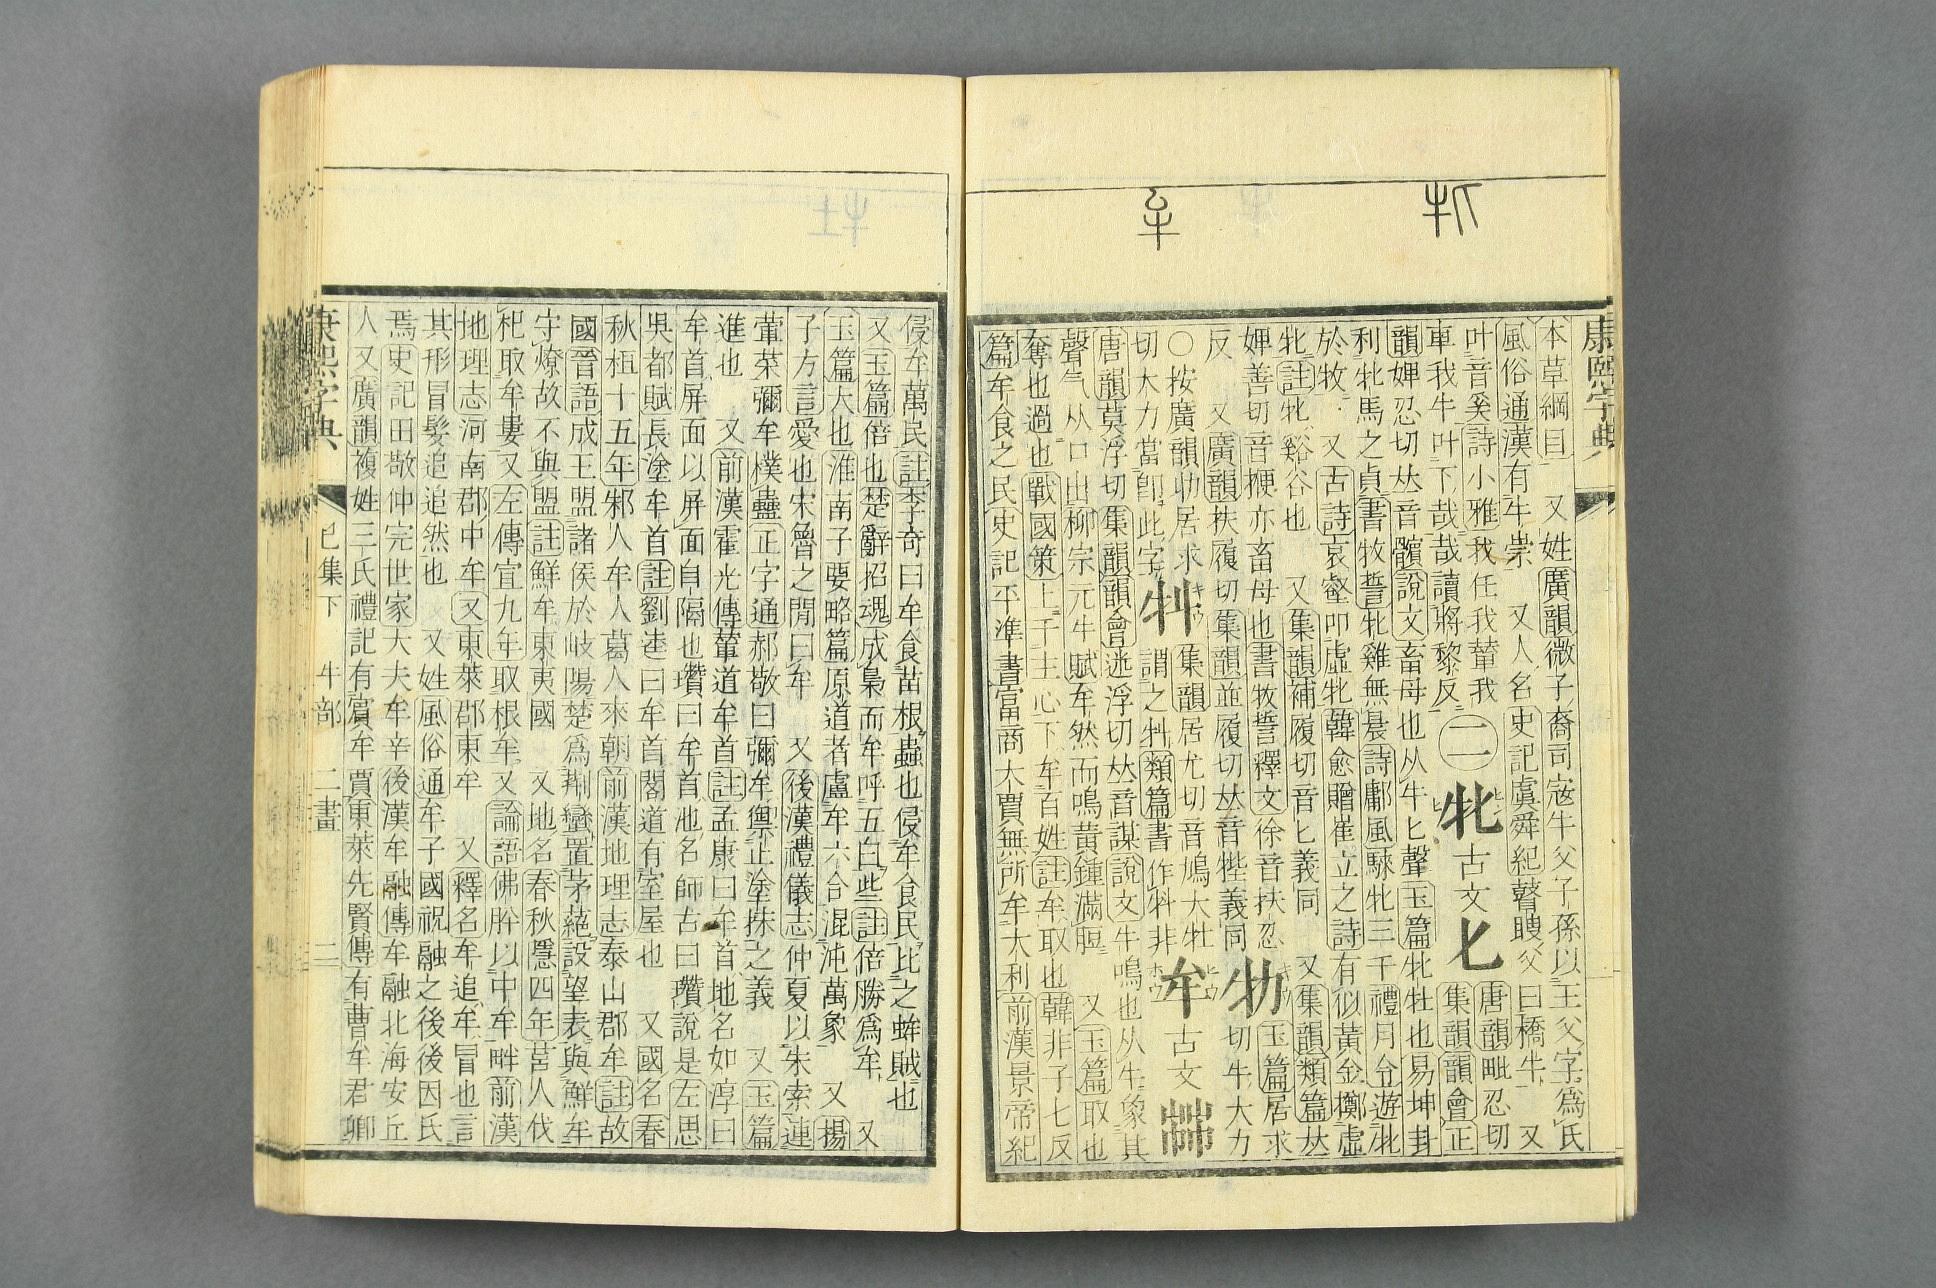 康熙字典
本草綱目 又姓廣韻微子裔司寇牛父子孫以王父字爲氏
風俗通漢有牛崇 又人名史記虞舜紀瞽瞍父曰橋牛 又
叶音奚詩小雅我任我輦我
車我牛叶下哉哉讀將黎反
二
牝
古文
𠤎
唐韻毗忍切
集韻韻會正
韻婢忍切𠀤音髕說文畜母也从牛匕聲玉篇牝牡也易坤卦
利牝馬之貞書牧誓牝雞無晨詩鄘風騋牝三千禮月令遊牝
於牧 又古詩哀壑叩虛牝韓愈贈崔立之詩有似黃金擲虛
牝註牝谿谷也 又集韻補履切音匕義同 又集韻類篇𠀤
婢善切音揙亦畜母也書牧誓釋文徐音扶忍
反 又廣韻扶履切集韻並履切𠀤音牝義同
牞
玉篇居求
切牛大力
○按廣韻㓛居求
切大力當卽此字
牪
集韻居尤切音鳩大牡
謂之牪類篇書作㸨非
牟
古文
𤛓
唐韻莫浮切集韻韻會迷浮切𠀤音謀說文牛鳴也从牛象其
聲气从口出柳宗元牛賦牟然而鳴黃鍾滿脰 又玉篇取也
奪也過也戰國策上干主心下牟百姓註牟取也韓非子七反
篇牟食之民史記平準書富商大賈無所牟大利前漢景帝紀
侵牟萬民註李奇曰牟食苗根蟲也侵牟食民比之蛑賊也
又玉篇倍也楚辭招魂成梟而牟呼五白些註倍勝爲牟 又
玉篇大也淮南子要略篇原道者盧牟六合混沌萬象 又揚
子方言愛也宋魯之閒曰牟 又後漢禮儀志仲夏以朱索連
葷菜彌牟樸蠱正字通郝敬曰彌牟禦止塗抹之義 又玉篇
進也 又前漢霍光傳輦道牟首註孟康曰牟首地名如淳曰
牟首屏面以屏面自隔也瓚曰牟首池名師古曰瓚說是左思
吳都賦長塗牟首註劉逵曰牟首閣道有室屋也 又國名春
秋桓十五年邾人牟人葛人來朝前漢地理志泰山郡牟註故
國晉語成王盟諸侯於岐陽楚爲荆蠻置茅蕝設望表與鮮牟
守燎故不與盟註鮮牟東夷國 又地名春秋隱四年莒人伐
杞取牟婁又左傳宣九年取根牟又論語佛肸以中牟畔前漢
地理志河南郡中牟又東萊郡東牟 又釋名牟追牟冒也言
其形冒髮追追然也 又姓風俗通牟子國祝融之後後因氏
焉史記田敬仲完世家大夫牟辛後漢牟融傳牟融北海安丘
人又廣韻複姓三氏禮記有賔牟賈東萊先賢傳有曹牟君卿
康熙字典 巳集下 牛部 二畫 二